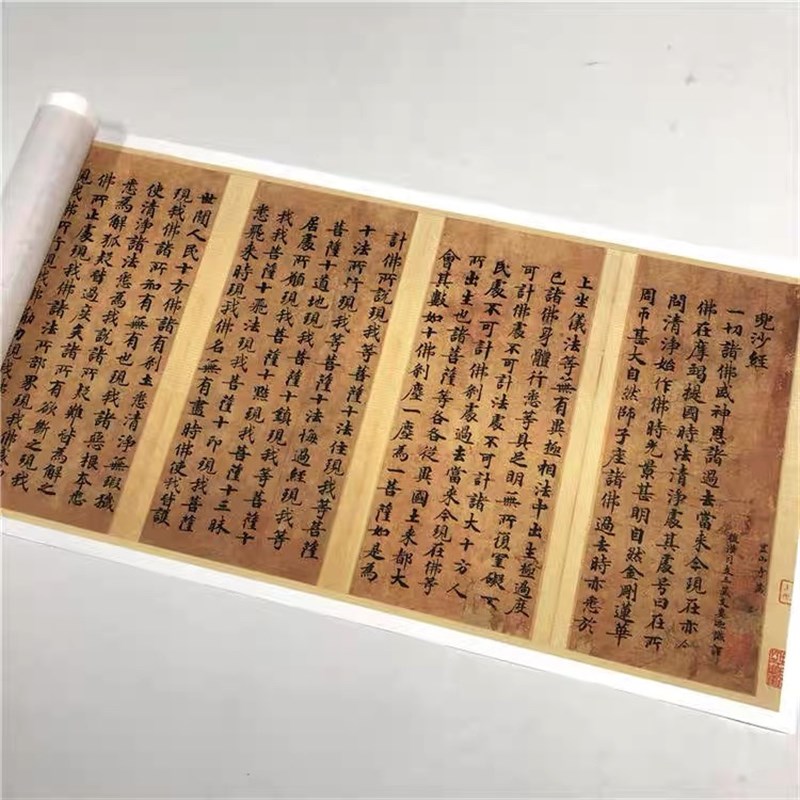 兜沙經
一切諸佛威神恩諸過去當來今現在亦令
後漢月支三藏支婁迦讖譯
佛在摩竭提國時法清淨處其處号曰在所
問清淨始作佛時光景甚明自然金剛蓮華
周帀甚大自然師子座諸佛過去時亦悉於
上坐儀法等無有異極相法中出生極過度
已諸佛身體行悉等具足明無所頂罣礙不
可計佛處不可計法處不可計諸大十方人
民處不可計佛剎處過去當來今現在佛等
所出生也諸菩薩等各各從異國土來都大
會其數如十佛剎塵一塵為一菩薩如是為
計佛所說現我等菩薩十法住現我等菩薩
十法所行現我等菩薩十法悔過經現我等
菩薩十道地現我菩薩十鎮現我等菩薩十
居處所願現我菩薩十黠現我等菩薩十三昧
我菩薩十飛法現我菩薩十印現我菩薩
悉飛來時現我佛名無有盡時佛使我皆護
世間人民十方佛諸有剎土悉清淨無瑕穢
現我佛諸所和有無有也現我諸惡根本悉
使清淨諸法悉為我說諸所疑難皆為解之
悉為解狐疑皆過度矣諸所有欲斷之現我
佛所止處現我佛諸法所部界現我佛